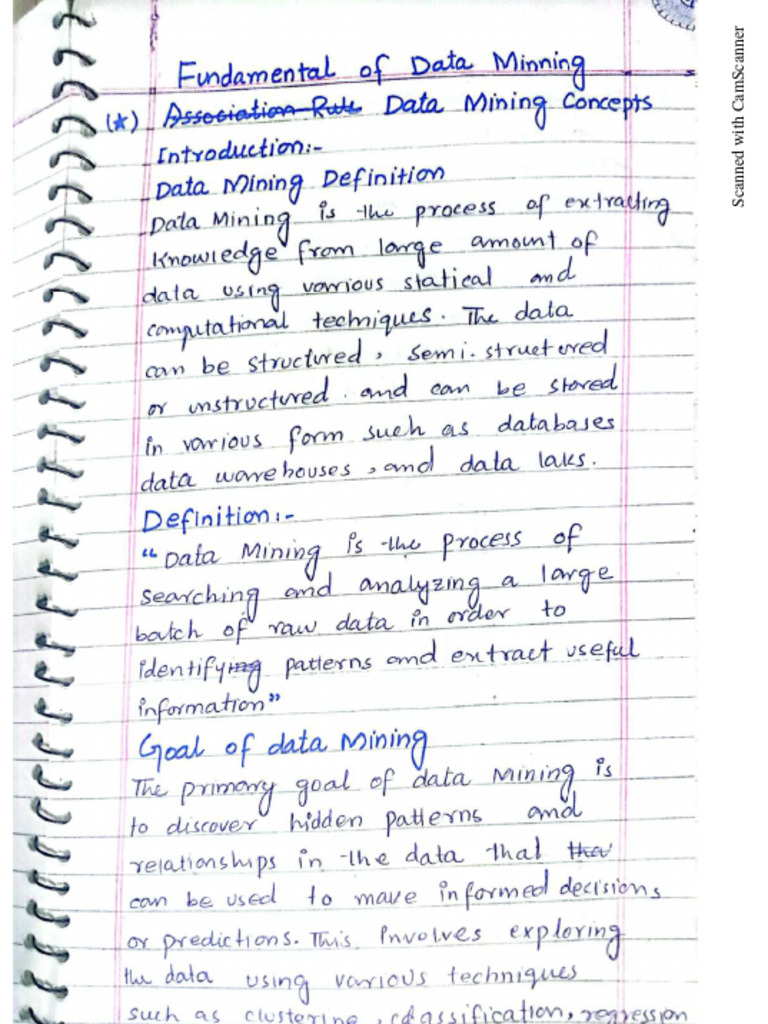 Fundamental of Data Minning
(*) Association Rule Data Mining Concepts
Introduction:-
Data Mining Definition
Data Mining is the process of extracting
knowledge from large amount of
data using various statical and
computational techniques. The data
can be structured, semi-structured
or unstructured and can be stored
in various form such as databases
data warehouses, and data laks.
Definition:-
"Data Mining is the process of
searching and analyzing a large
batch of raw data in order to
identifying patterns and extract useful
information"
Goal of data Mining
The primary goal of data mining is
to discover hidden patterns and
relationships in the data that
can be used to make informed decisions
or predictions. This involves exploring
the data using various techniques
such as clustering, classification, regression
Scanned with CamScanner